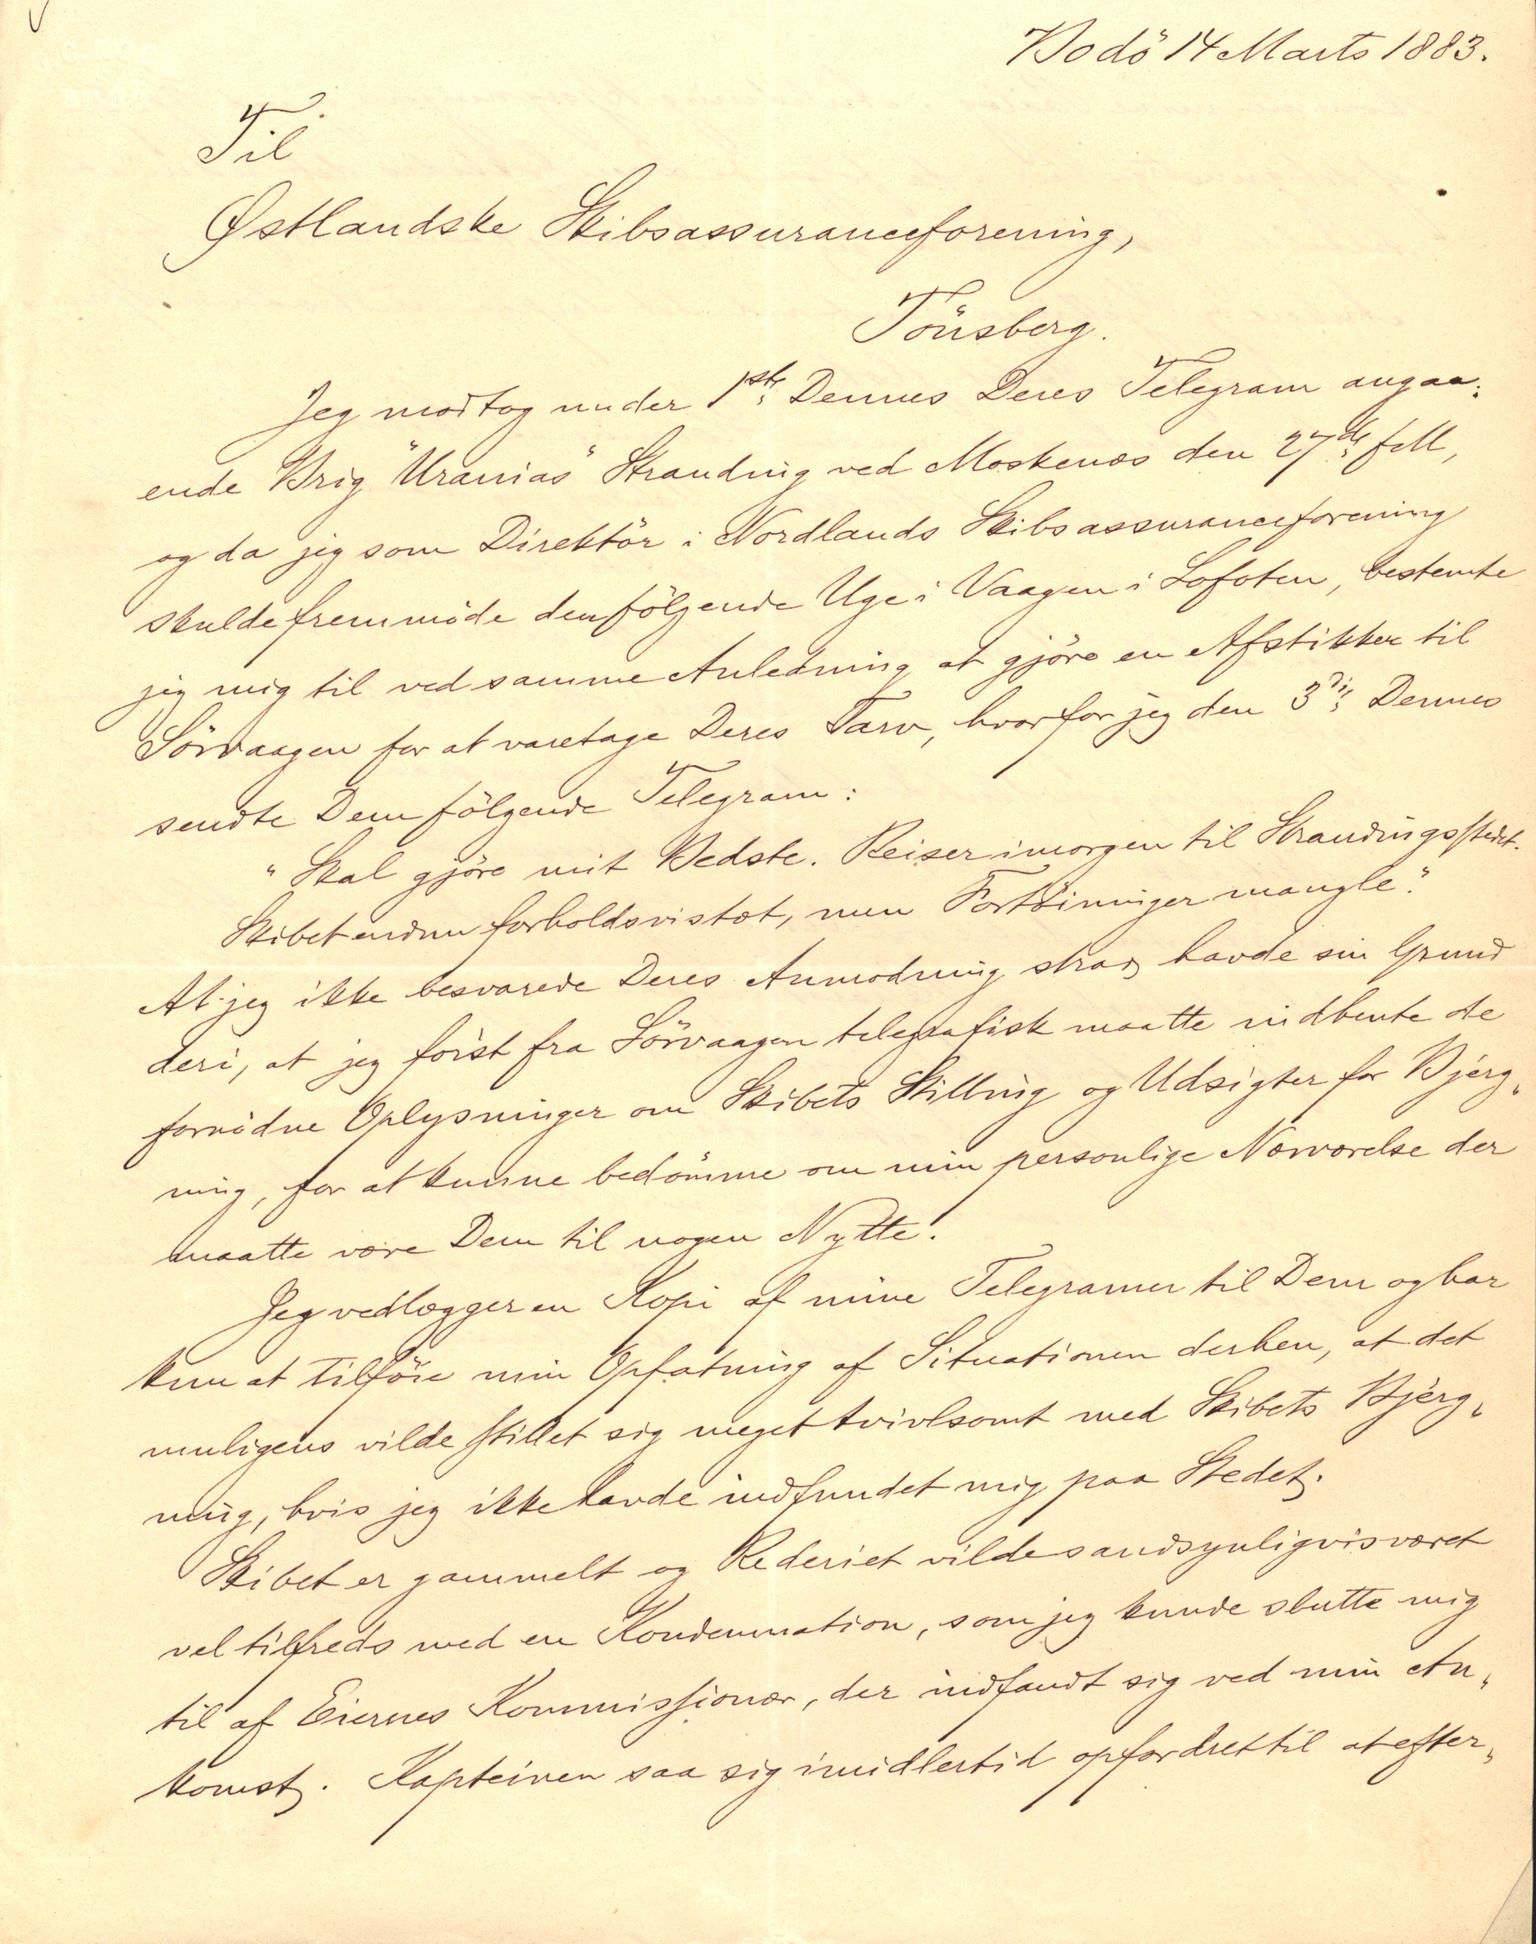 Bodö 14 Marts 1883.
Til
Østlandske Skibsassuranceforening,
Tönsberg.
Jeg modtog under 1ste Dennes Deres Telegram angaa-
ende Brig "Uranias" Stranding ved Moskenæs den 27de f M,
og da jeg som Direktör i Nordlands Skibsassuranceforening
skulde fremmöde den fölgende Uge i Vaagen i Lofoten, bestemte
jeg mig til ved samme Anledning at gjöre en Afstikker til
Sörvaagen for at varetage Deres Tarv, hvorfor jeg den 3die Dennes
sendte Dem fölgende Telegram:
"Skal gjöre mit Bedste. Reiser imorgen til Strandingsstedet.
Skibet endnu forholdsvis tæt, men Fortöininger mangle."
At jeg ikke besvarede Deres Anmodning strax, havde sin Grund
deri, at jeg först fra Sörvaagen telegrafisk maatte indhente de
fornödne Oplysninger om Skibets Stilling og Udsigter for Bjerg-
ning, for at kunne bedömme om min personlige Nærværelse der
maatte være Dem til nogen Nytte.
Jeg vedlægger en Kopi af mine Telegramer til Dem og har
kun at tilföie min Opfatning af Situationen derhen, at det
muligens vilde stillet sig meget tvivlsomt med Skibets Bjerg-
ning, hvis jeg ikke havde indfundet mig paa Stedet.
Skibet er gammelt og Rederiet vilde sandsynligvis været
vel tilfreds med en Kondemnation, som jeg kunde slutte mig
til af Eiernes Kommissjonær, der indfandt sig ved min An-
komst. Kapteinen saa sig imidlertid opfordret til at efter-